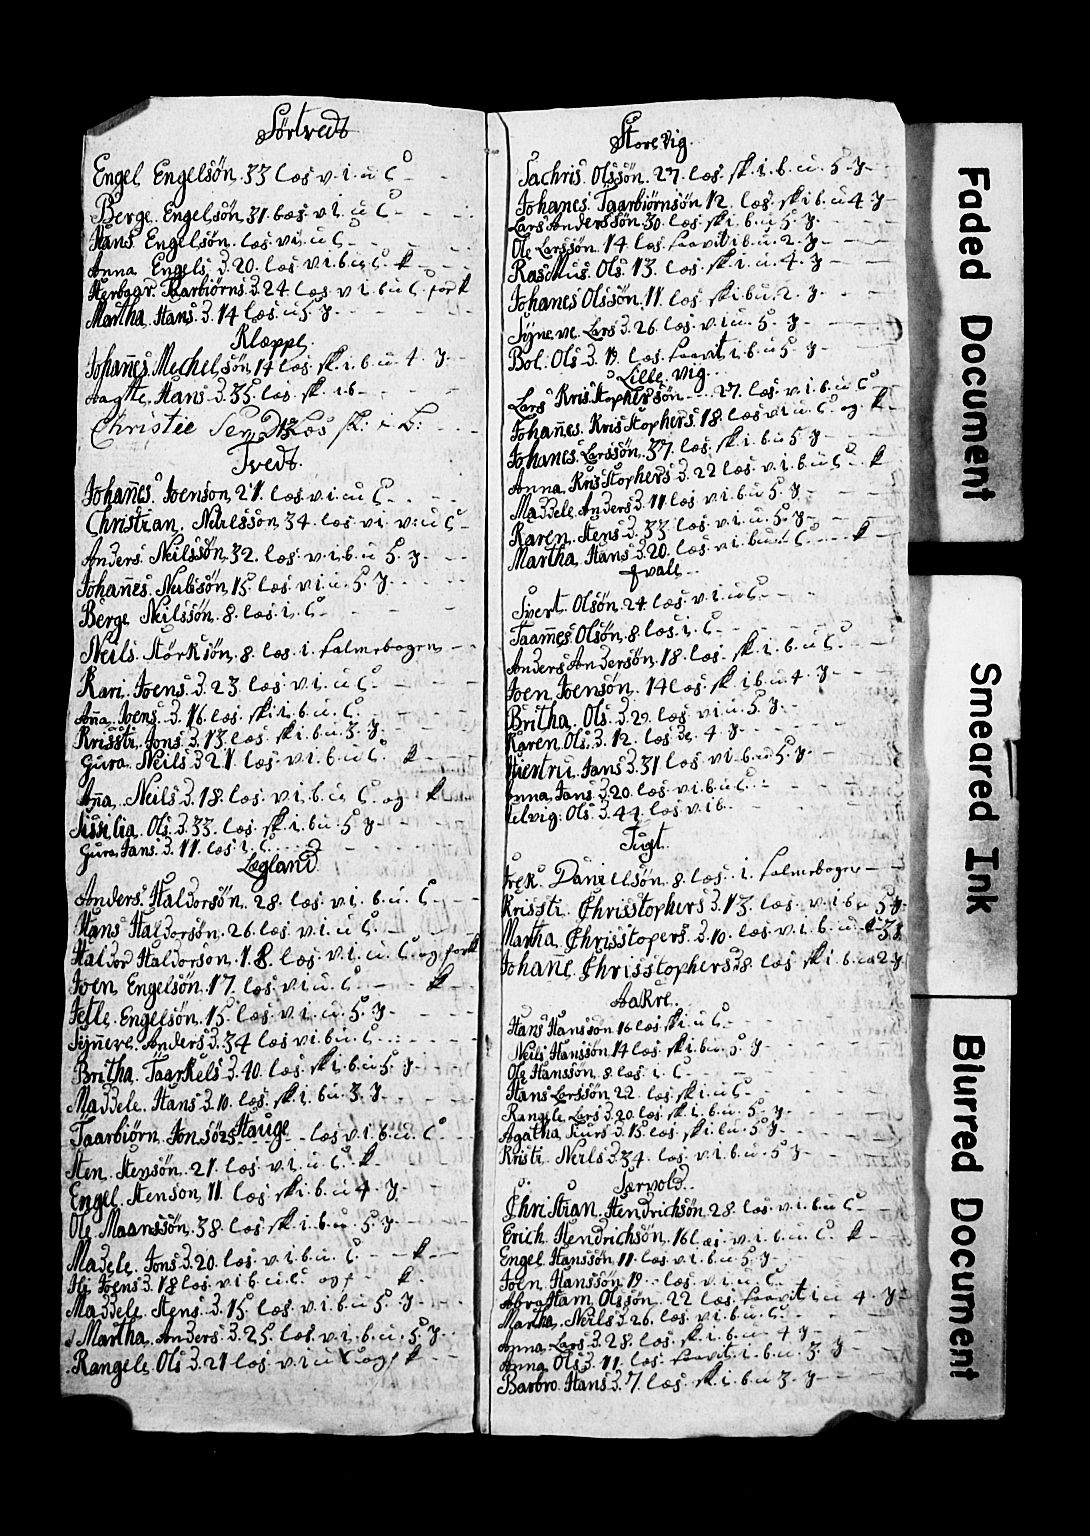 Sörtvedt
Engel Engelsön 33 læs v. i. u C
Berge Engelsön 31 læs v i. u C
Hans Engelsön læs v i. u C
Anna Engels D. 20. læs v i. b u C. k
Taarbiörns D. 24 læs v i b u C. k
Martha Hans D. 14 læs u 5 y
Kleppe
Johañes Mechelsön 14 læs sk. i. b. u 4. y
Aagtte Hans D. 35. læs sk. i b
Christie 
Tvedt.
Johañes Joenson 21. læs. v. i. u C
Christian Neilssön 34. læs v i. v. u C
Anders Neilssön 32. læs v. i. b. u 5. y
Johañes Neilssön 15. læs v. i. u 5. y
Berge Neilssön 8. læs. i. C
Neils Störksön 8. læs. i. Salmebogen
Kari Joens D. 23. læs v. i. u C
Aña Joens D. 16 læs. sk. i. b. u. C
Krissti Jons D. 13. læs. sk i. b u 3. y
Gura Neils D 21. læs v i. b u C. k
Aña Neils D. 18. læs v. i. b. u C. og k
Sissilia Ols D. 33. læs. sk. i. b u 5 y
Gura Jans D. 11. læs i. C
Lægland
Anders Haldorsön 28. læs v. i. b. u. C
Hans Haldorsön 26. læs v i. u C
Haldor Haldorson 18. læs v i. u C. og
Joen Engelsön 17. læs v i. u C k
Jelle Engelsön 15. læs v. i. u. 5. y
Siñeve Anders D. 34 læs v i. b u. C
Britha Taarkels D. 10. læs. sk. i. b u 5 y
Maddele Hans D. 10. læs. sk. i. b u. 3. y
Hauge
Taarbiörn Jonsön læs v i. b. u. C
Sten Stensön 21. læs. v. i. u C. k
Engel Stenson 11 læs sk. i. b. u 4. y
Ole Maanssön 38. læs sk. i. b u 5 y
Madele Jons D. 20. læs v i. b u C k
Joens D. 18 læs. v i b. u C og k
Maddele Stens D. 15. læs v i. b u 5. y
Martha Anders D. 25. læs v. i. b. u 5 y
Rangele Ols D. 21 læs. v i u C og k
Storevig
Sachris Olssön 27. læs. sk. i. b. u. 5 y
Johanes Taarbiörnsön 12. læs. sk i b. u 4 y
Lars Anderssön 30. læs sk i. b u 5 y
Ole Larssön 14 læs. i b. u. 2. y
Rasmus Ols 13. læs sk. i. u. 4. y
Johanes Olssön 11. læs sk i b u. 2. y
Syneve Lars D. 26. læs v. i. u. 5. y
Bol. Ols D. 19. læs i. b u 5 y
Lille vig
Lars Kristophersson 27. læs v. i. b. u C
Johañes Kristophers 18. læs v i u C. og k
Johanes Larssön 37. læs sk i b u 5 y
Anna Kristophers D. 22 læs v. i. b u C. k
Maddele Anders D. 11 læs v i b. u 5 y
Karen Stens D. 33 læs v. i. u. 5. y
Martha Hans D. 20. læs v i. b u C. k
Qvale
Sivert Olsön 24. læs v. i. u C
Taames Olsön 8. læs. i. C
Anders Andersön 18. læs sk. i. b. u C
Joen Joensön 14 læs. sk i. b u 4 y
Britha Ols D. 29. læs v i. u 5. y
Karen Ols D. 12. læs. 4 y
Jans D. 31 læs v i. b u 5. y
Anna Jans D. 20. læs v i. b u C
Ols D. 44. læs. v i b
Tugt
Danielsön 8. læs. i. Salmebogen
Krissti Chrisstophers D. 13. læs. v i b u 5 y
Martha Chrisstopers D. 10. læs. v. i. b. u. 3 y
Johañe Chrisstophers D. 8. læs sk i. b. u 2 y
Aakre
Hans Hanssön 16 læs. sk i. u C
Neils Hanssön 14 læs. sk i. b u 5 y
Ole Hanssön 8. læs. i. C
Hans Larssön 22. læs. sk. i. u C
Rangele Lars D. 20. læs sk i. b. u. 5 y
Agatha Siurs D. 15. læs. sk i. b u 5 y
Kristi Neils D. 34. læs. v. i. b u 5 y
Særvold
Christian Hendrichsön 28. læs. v. i. b. u C
Erich Hendrichsön 16 læs. v. i. b. u C. k
Engel Hanssön 11 læs v i. b u 5 y
Joen Hanssön 19. læs. v. i. u C
Abraham Olssön 22 læs. i u 4. y
Martha Neils D. 26. læs v i. u C
Anna Lars D. 28. læs. sk i. b. u 4 y
Anna Ols D. 11. læs. i. b. u 3 y
Barbro Hans D. 7. læs. sk. i. b u 3. y
Faded Document
Smeared Ink
Blurred Document